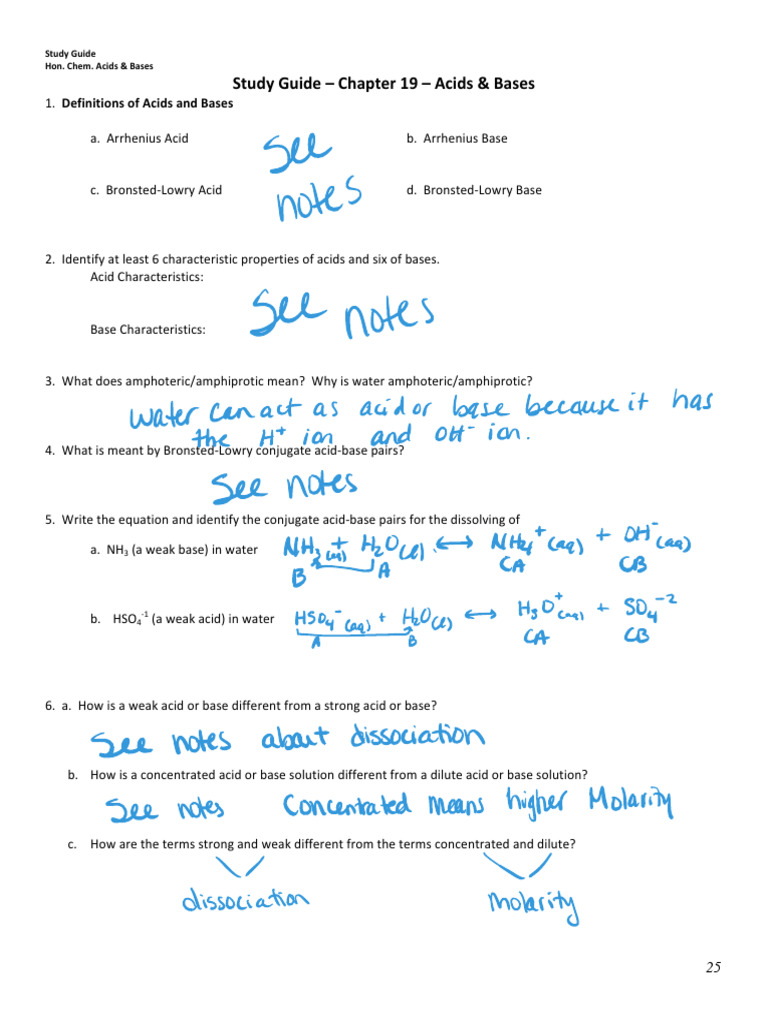 Study Guide
Hon. Chem. Acids & Bases
Study Guide – Chapter 19 – Acids & Bases
1. Definitions of Acids and Bases
a. Arrhenius Acid
b. Arrhenius Base
See
c. Bronsted-Lowry Acid
d. Bronsted-Lowry Base
notes
2. Identify at least 6 characteristic properties of acids and six of bases.
Acid Characteristics:
See notes
Base Characteristics:
3. What does amphoteric/amphiprotic mean? Why is water amphoteric/amphiprotic?
water can act as acid or base because it has
the H⁺ ion and OH⁻ ion.
4. What is meant by Bronsted-Lowry conjugate acid-base pairs?
See notes
5. Write the equation and identify the conjugate acid-base pairs for the dissolving of
a. NH₃ (a weak base) in water NH₃(aq) + H₂O(l) ↔ NH₄⁺(aq) + OH⁻(aq)
B A CA CB
b. HSO₄⁻¹ (a weak acid) in water HSO₄⁻(aq) + H₂O(l) ↔ H₃O⁺(aq) + SO₄⁻²
A B CA CB
6. a. How is a weak acid or base different from a strong acid or base?
See notes about dissociation
b. How is a concentrated acid or base solution different from a dilute acid or base solution?
See notes Concentrated means higher Molarity
c. How are the terms strong and weak different from the terms concentrated and dilute?
dissociation molarity
25